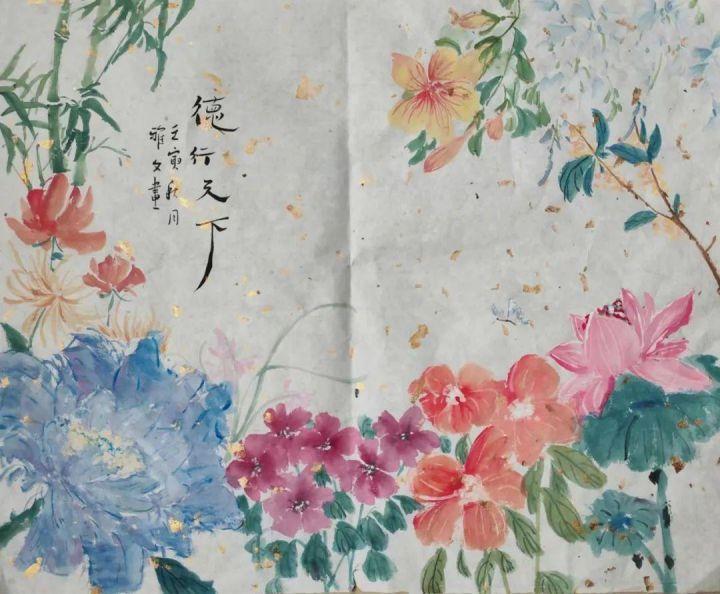 德行天下
壬寅秋月
雅文畫